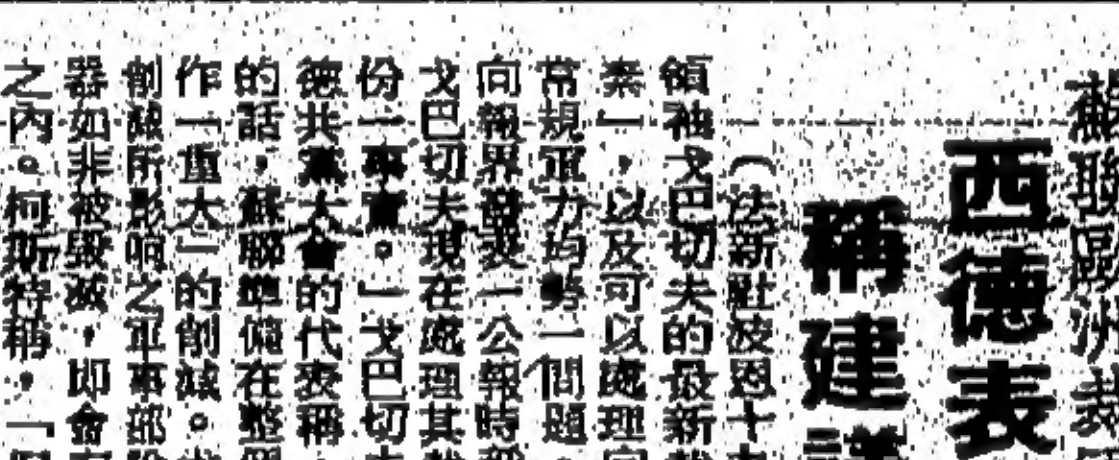 蘇聯歐洲裁
西德表
稱建議
（法新社波恩十
領袖戈巴切夫的最新
素」，以及可以處理
常規軍力均勢一問題
向報界發表一公報時
戈巴切夫現在處理其
份一事實。」戈巴切
德共黨大會的代表稱
的話，蘇聯準備在整個
作一重大」的削減。
削減所影响之軍事部
器如非被毀滅，即會
之內。柯斯特稱，「